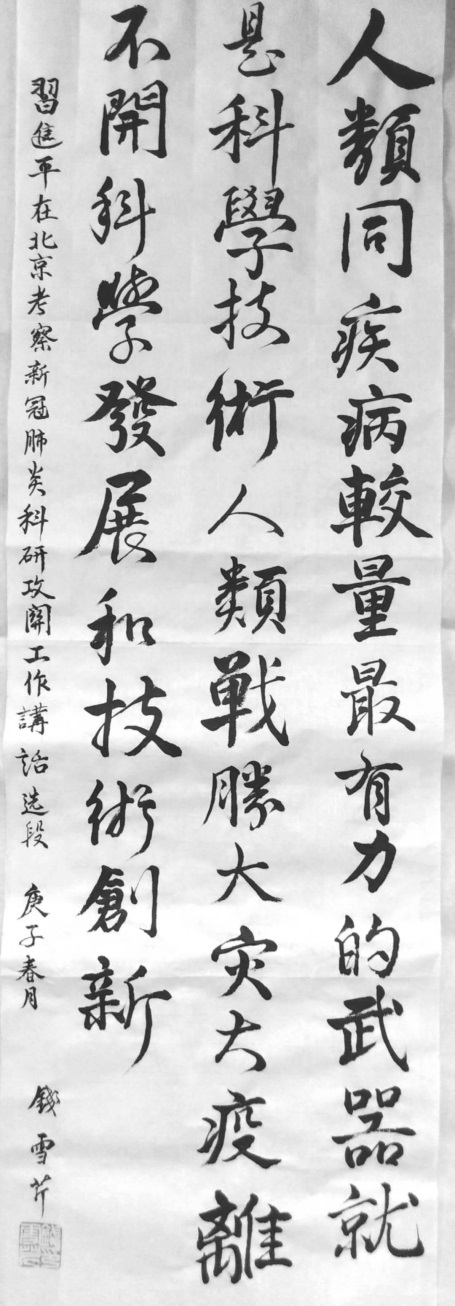 人類同疾病較量最有力的武器就
是科學技術人類戰勝大灾大疫離
不開科學發展和技術創新
習近平在北京考察新冠肺炎科研攻關工作講話选段 庚子春月
錢雪芹